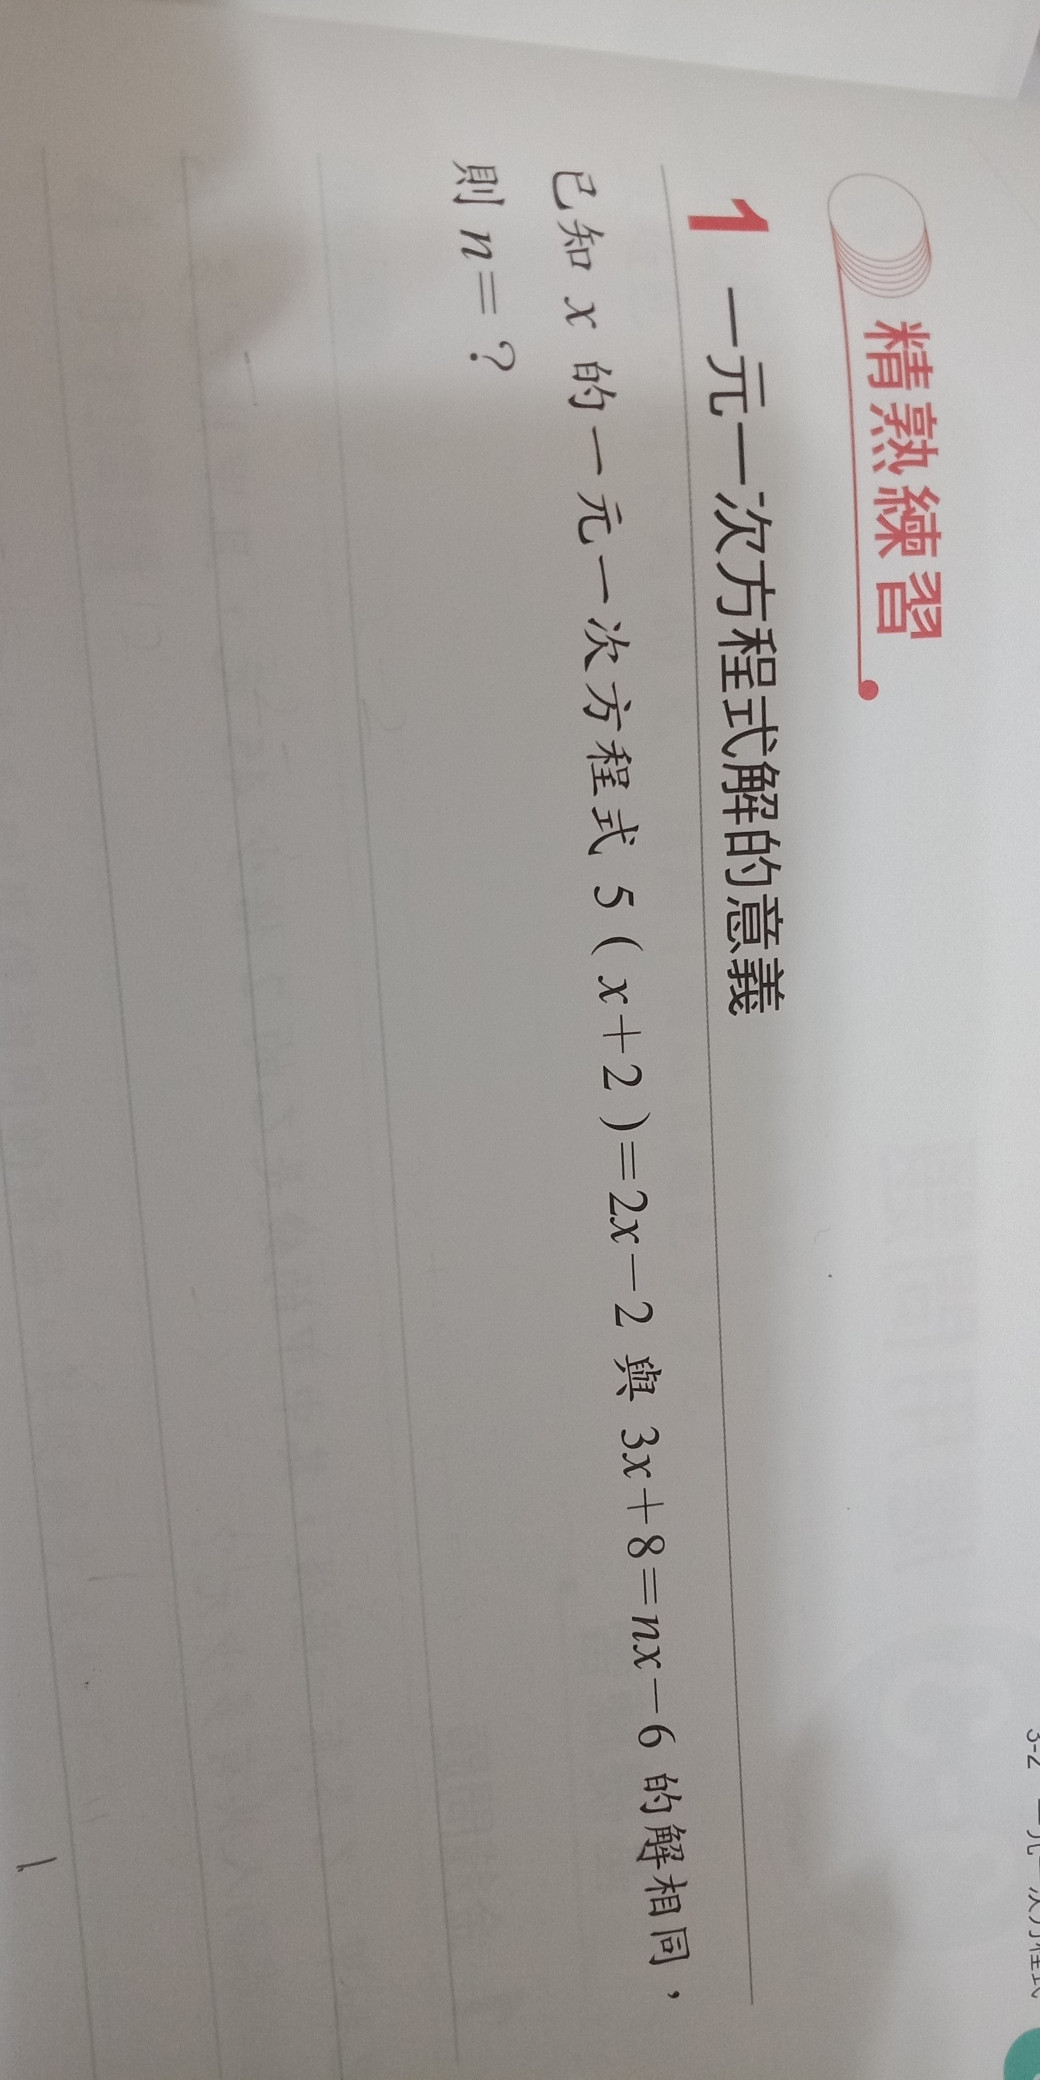 3-2 一元一次方程式
精熟練習
1 一元一次方程式解的意義
已知 x 的一元一次方程式 5(x+2)=2x-2 與 3x+8=nx-6 的解相同,
則 n=?